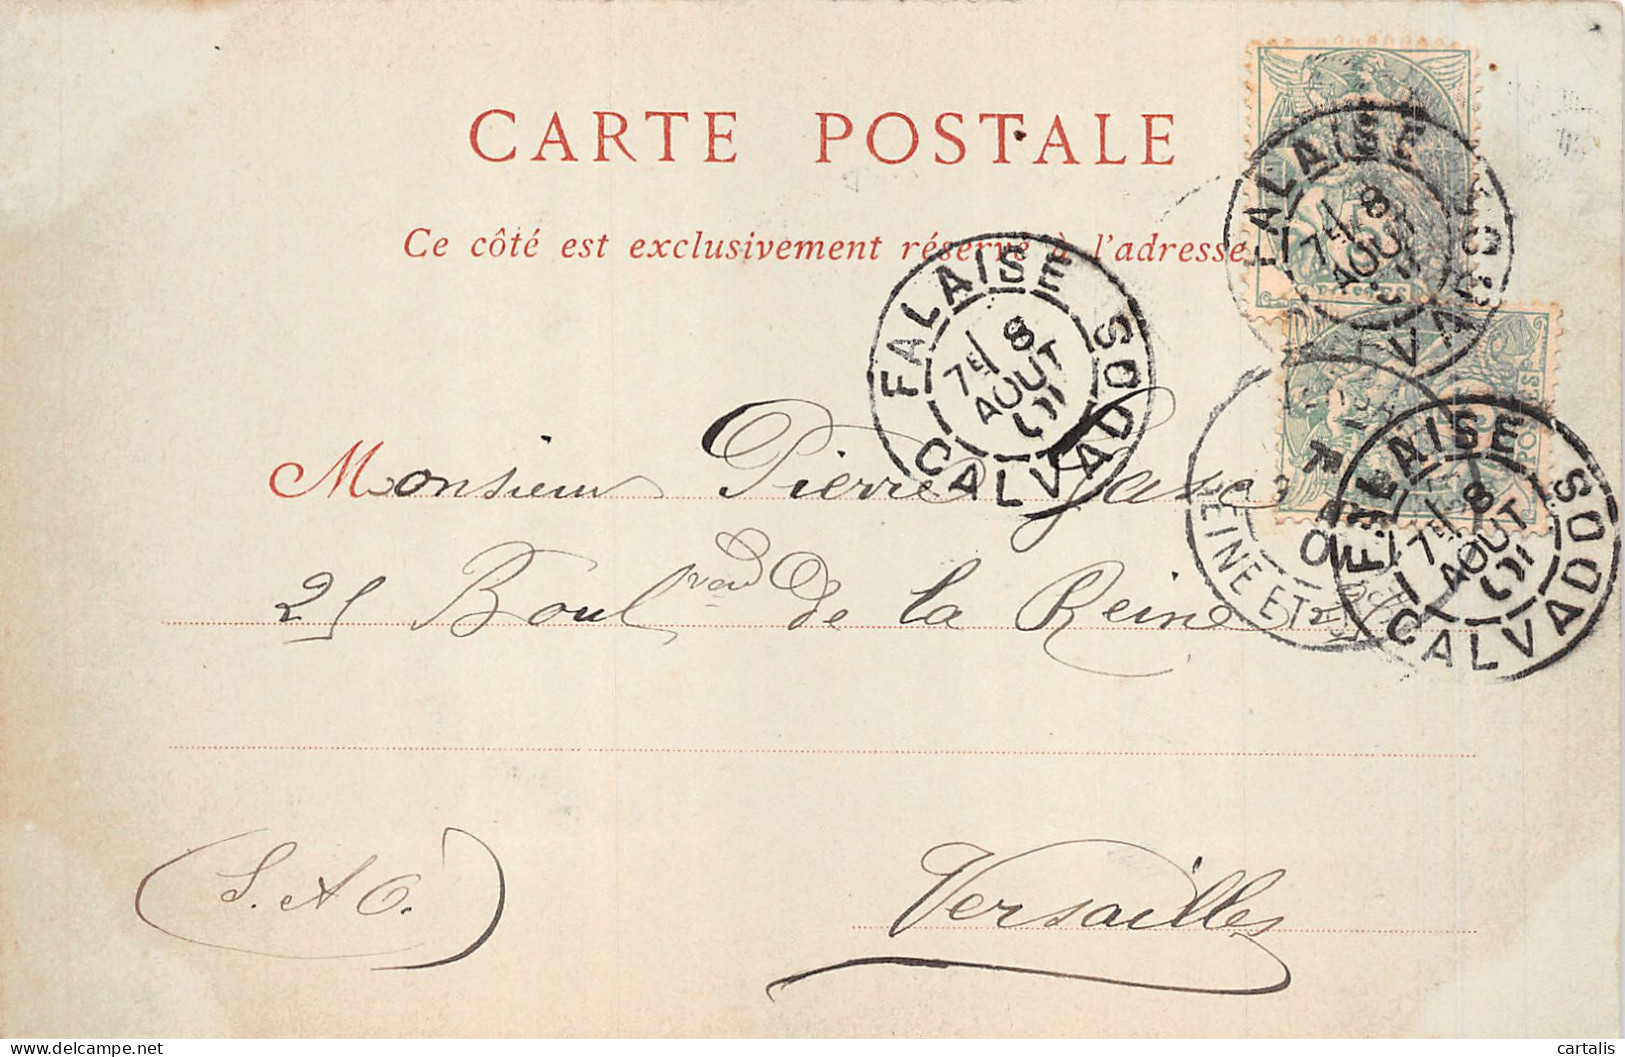 CARTE POSTALE
Ce côté est exclusivement réservé à l'adresse
FALAISE
7E 8
AOUT
01
CALVADOS
FALAISE
7E 8
AOUT
CALVADOS
FALAISE
7E 8
AOUT
01
CALVADOS
SEINE ET
POSTES
Monsieur Pierre
25 Boulvard de la Reine
(S. et O.)
Versailles
www.delcampe.net
cartalis